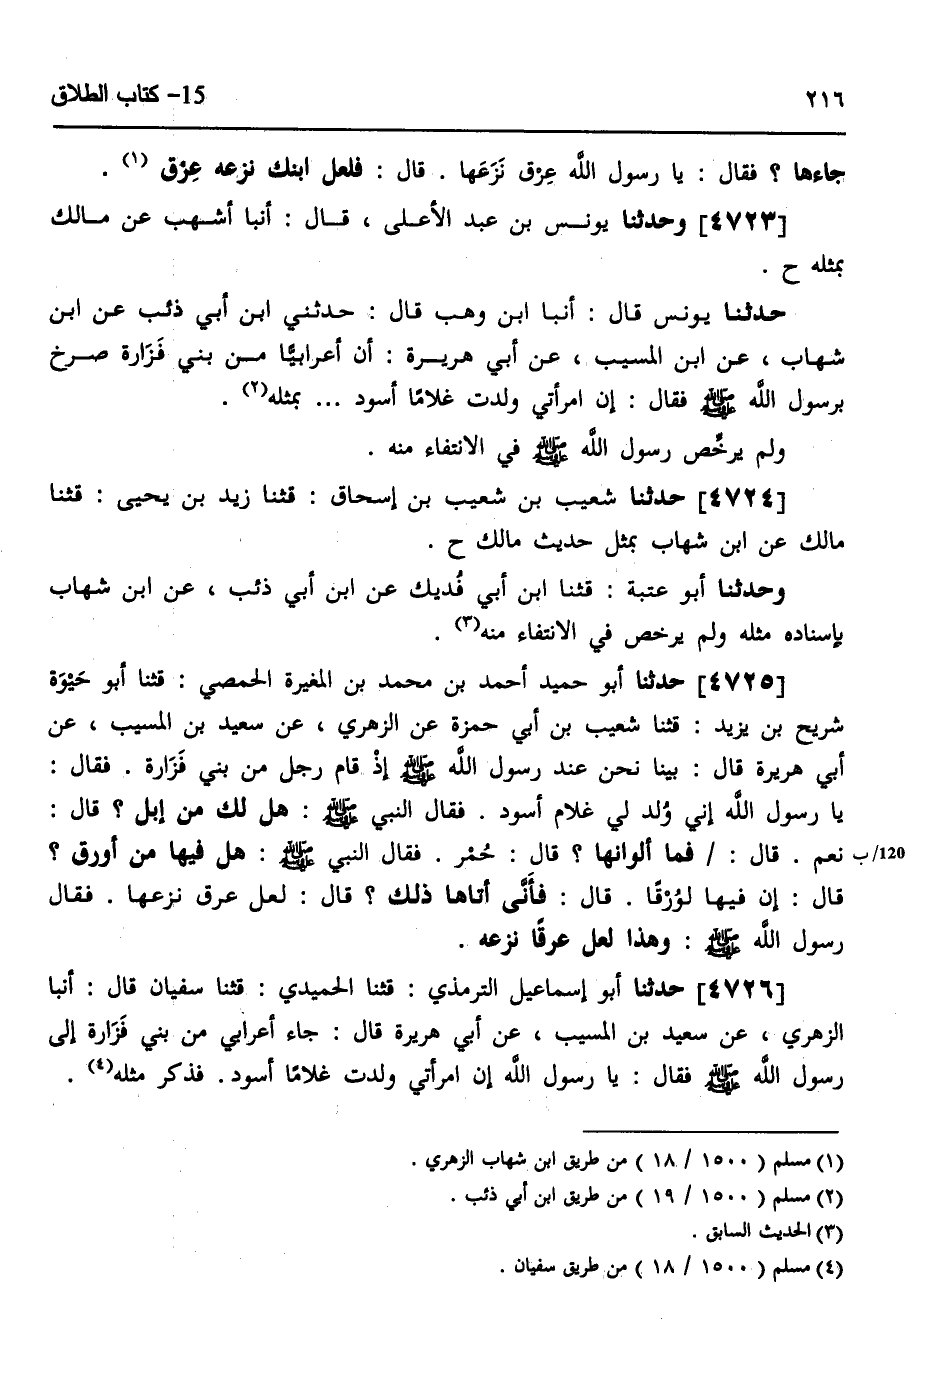 ٢١٦ 15- كتاب الطلاق
جاءها ؟ فقال : يا رسول اللَّه عِرْق نَزَعَها . قال : فلعل ابنك نزعه عِرْق (١) .
[٤٧٢٣] وحدثنا يونس بن عبد الأعلى ، قال : أنبا أشهب عن مالك
بمثله ح .
حدثنا يونس قال : أنبا ابن وهب قال : حدثني ابن أبي ذئب عن ابن
شهاب ، عن ابن المسيب ، عن أبي هريرة : أن أعرابيًّا من بني فَزَارة صرخ
برسول اللَّه ﷺ فقال : إن امرأتي ولدت غلامًا أسود ... بمثله(٢) .
ولم يرخِّص رسول اللَّه ﷺ في الانتفاء منه .
[٤٧٢٤] حدثنا شعيب بن شعيب بن إسحاق : قثنا زيد بن يحيى : قثنا
مالك عن ابن شهاب بمثل حديث مالك ح .
وحدثنا أبو عتبة : قثنا ابن أبي فُديك عن ابن أبي ذئب ، عن ابن شهاب
بإسناده مثله ولم يرخص في الانتفاء منه(٣) .
[٤٧٢٥] حدثنا أبو حميد أحمد بن محمد بن المغيرة الحمصي : قثنا أبو حَيْوَة
شريح بن يزيد : قثنا شعيب بن أبي حمزة عن الزهري ، عن سعيد بن المسيب ، عن
أبي هريرة قال : بينا نحن عند رسول اللَّه ﷺ إذْ قام رجل من بني فَزَارة . فقال :
يا رسول اللَّه إني وُلد لي غلام أسود . فقال النبي ﷺ : هل لك من إبل ؟ قال :
نعم . قال : / فما ألوانها ؟ قال : حُمْر . فقال النبي ﷺ : هل فيها من أورق ؟ 120/ب
قال : إن فيها لوُرْقًا . قال : فأَنَّى أتاها ذلك ؟ قال : لعل عرق نزعها . فقال
رسول اللَّه ﷺ : وهذا لعل عرقًا نزعه .
[٤٧٢٦] حدثنا أبو إسماعيل الترمذي : قثنا الحميدي : قثنا سفيان قال : أنبا
الزهري ، عن سعيد بن المسيب ، عن أبي هريرة قال : جاء أعرابي من بني فَزَارة إلى
رسول اللَّه ﷺ فقال : يا رسول اللَّه إن امرأتي ولدت غلامًا أسود. فذكر مثله(٤) .
(١) مسلم ( ١٥٠٠ / ١٨ ) من طريق ابن شهاب الزهري .
(٢) مسلم ( ١٥٠٠ / ١٩ ) من طريق ابن أبي ذئب .
(٣) الحديث السابق .
(٤) مسلم ( ١٥٠٠ / ١٨ ) من طريق سفيان .